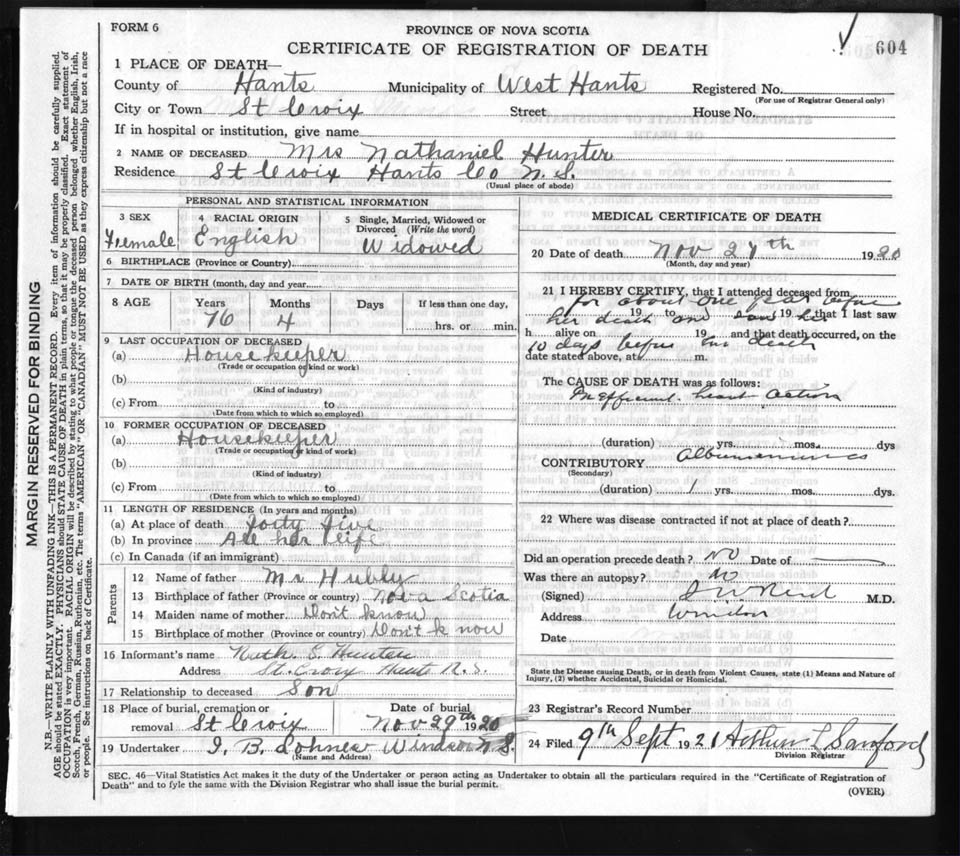 FORM 6
PROVINCE OF NOVA SCOTIA
CERTIFICATE OF REGISTRATION OF DEATH
604
1 PLACE OF DEATH—
County of Hants Municipality of West Hants Registered No.
(For use of Registrar General only)
City or Town St Croix Street House No.
If in hospital or institution, give name
2 NAME OF DECEASED Mrs Nathaniel Hunter
Residence St Croix Hants Co N. S.
(Usual place of abode)
PERSONAL AND STATISTICAL INFORMATION
3 SEX
Female
4 RACIAL ORIGIN
English
5 Single, Married, Widowed or Divorced (Write the word)
Widowed
6 BIRTHPLACE (Province or Country)
7 DATE OF BIRTH (month, day and year)
8 AGE Years Months Days If less than one day,
76 4 hrs. or min.
9 LAST OCCUPATION OF DECEASED
(a) Housekeeper
(Trade or occupation or kind or work)
(b)
(Kind of industry)
(c) From to
(Date from which to which so employed)
10 FORMER OCCUPATION OF DECEASED
(a) Housekeeper
(Trade or occupation or kind of work)
(b)
(Kind of industry)
(c) From to
(Date from which to which so employed)
11 LENGTH OF RESIDENCE (In years and months)
(a) At place of death forty five
(b) In province All her life
(c) In Canada (if an immigrant)
Parents
12 Name of father Mr Hubly
13 Birthplace of father (Province or country) Nova Scotia
14 Maiden name of mother Don't know
15 Birthplace of mother (Province or country) Don't know
16 Informant's name Nath. E. Hunter
Address St. Croix Hants N. S.
17 Relationship to deceased Son
18 Place of burial, cremation or removal St Croix
Date of burial
Nov 29th 1920
19 Undertaker I. B. Lohnes Windsor N. S.
(Name and Address)
MEDICAL CERTIFICATE OF DEATH
20 Date of death Nov 27th 1920
(Month, day and year)
21 I HEREBY CERTIFY, that I attended deceased from
for about one year before
19 to 19 that I last saw
her death and saw her
h alive on 19 and that death occurred, on the
10 days before her death
date stated above, at m.
The CAUSE OF DEATH was as follows:
Inefficient heart action
(duration) yrs. mos. dys
CONTRIBUTORY
(Secondary)
(duration) 1 yrs. mos. dys.
22 Where was disease contracted if not at place of death?
Did an operation precede death? No Date of
Was there an autopsy? No
(Signed) M.D.
Address Windsor
Date
State the Disease causing Death, or in death from Violent Causes, state (1) Means and Nature of Injury, (2) whether Accidental, Suicidal or Homicidal.
23 Registrar's Record Number
24 Filed 9th Sept 1921 Arthur L Sanford
Division Registrar
SEC. 46—Vital Statistics Act makes it the duty of the Undertaker or person acting as Undertaker to obtain all the particulars required in the "Certificate of Registration of
Death" and to fyle the same with the Division Registrar who shall issue the burial permit.
(OVER)
MARGIN RESERVED FOR BINDING
N.B.—WRITE PLAINLY WITH UNFADING INK—THIS IS A PERMANENT RECORD. Every item of information should be carefully supplied.
AGE should be stated EXACTLY. PHYSICIANS should STATE CAUSE OF DEATH in plain terms, so that it may be properly classified. Exact statement of
OCCUPATION is very important. RACIAL ORIGIN will be described by stating to what people or tongue the deceased person belonged whether English, Irish,
Scotch, French, German, Russian, Ruthenian, etc. The terms "AMERICAN" OR "CANADIAN" MUST NOT BE USED as they express citizenship but not a race
or people. See instructions on back of Certificate.